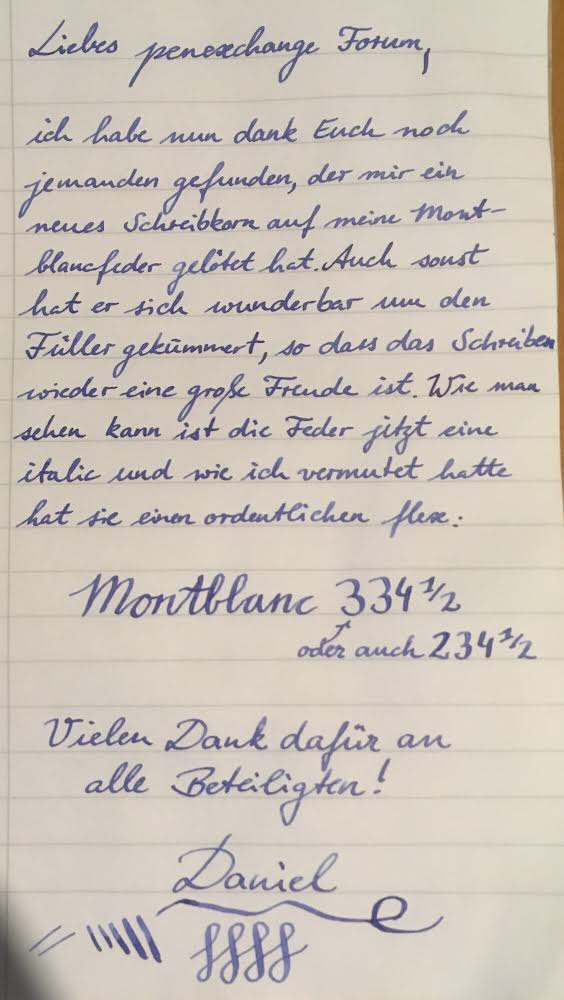 Liebes penexchange Forum,
ich habe nun dank Euch noch
jemanden gefunden, der mir ein
neues Schreibkorn auf meine Mont-
blancfeder gelötet hat. Auch sonst
hat er sich wunderbar um den
Füller gekümmert, so dass das Schreiben
wieder eine große Freude ist. Wie man
sehen kann ist die Feder jetzt eine
italic und wie ich vermutet hatte
hat sie einen ordentlichen flex:
Montblanc 334 1/2
oder auch 234 1/2
Vielen Dank dafür an
alle Beteiligten!
Daniel